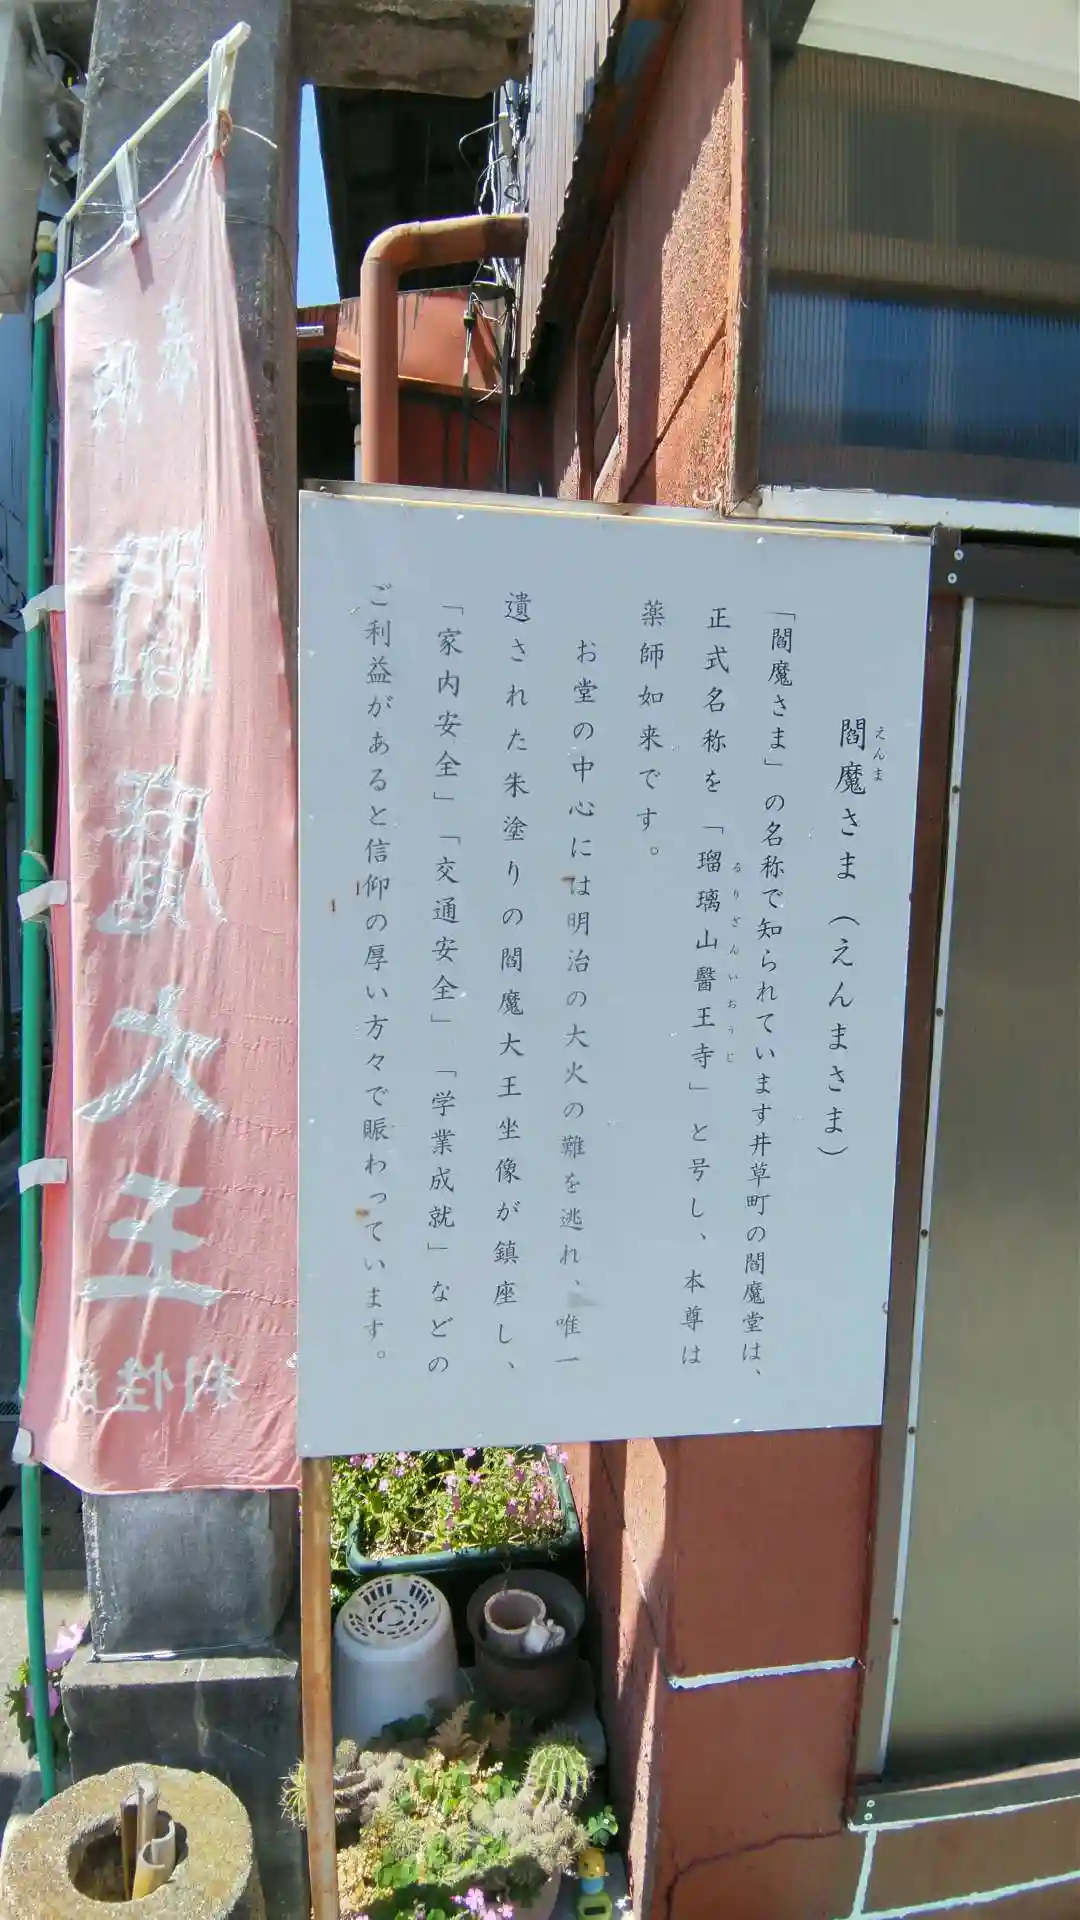 閻魔さま（えんまさま）
えんま
「閻魔さま」の名称で知られています井草町の閻魔堂は、
正式名称を「瑠璃山醫王寺」と号し、本尊は
るりざんいおうじ
薬師如来です。
お堂の中心には明治の大火の難を逃れ、唯一
遺された朱塗りの閻魔大王坐像が鎮座し、
「家内安全」「交通安全」「学業成就」などの
ご利益があると信仰の厚い方々で賑わっています。
大王